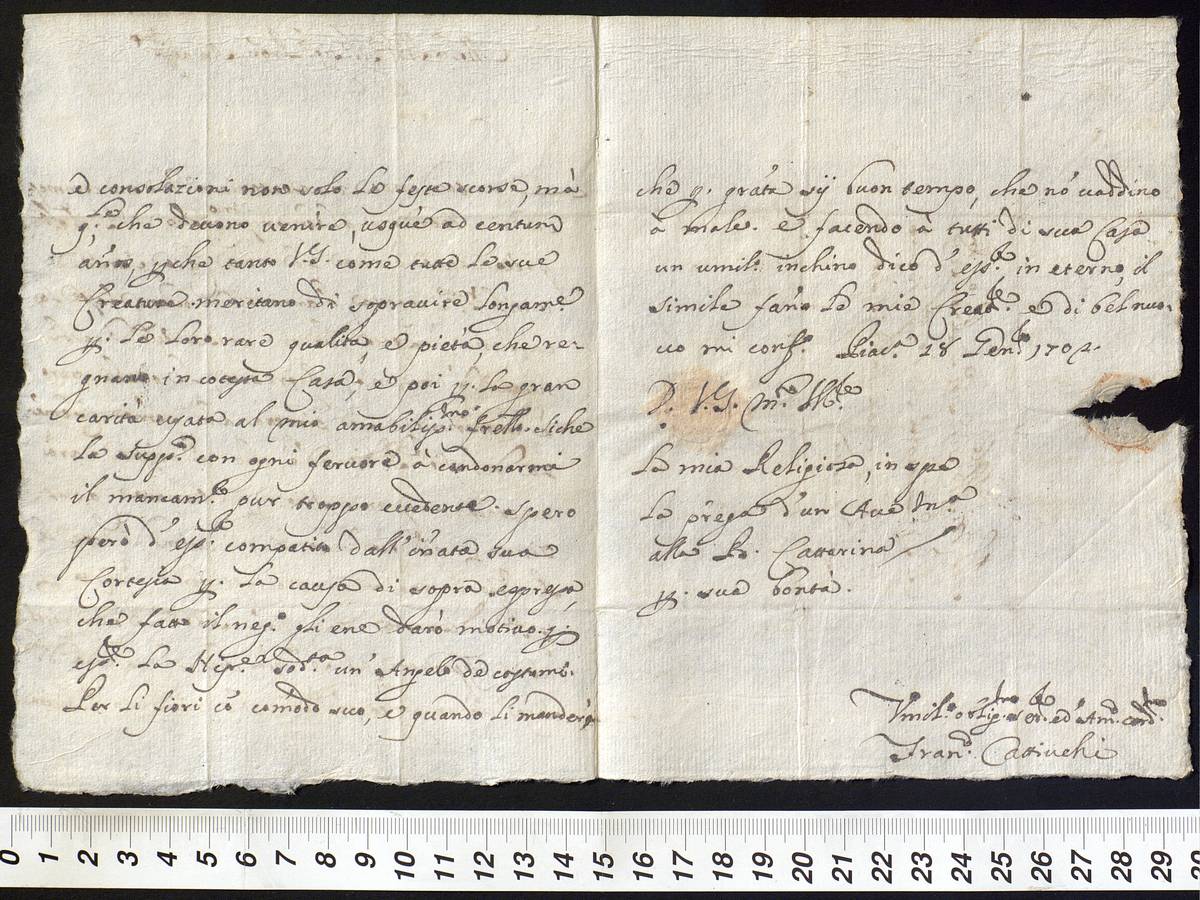 e consolazioni non solo le feste scorse, mà
q.le che devono venire, usque ad centum
años, p.che tanto V.S. come tutte le sue
Creature meritano di sopravire longam.e
p. le loro rare qualità, e pietà, che re-
gnano in cotesta Casa, e poi p. la gran
carità usata al mio amabiliss.mo frello. siche
la supp.co con ogni fervore à condonarmi
il mancam.to pur troppo evedente. spero
però d' ess.e compatito dall' iñata sua
Cortesia p. la causa di sopra espressa,
che fatto il neg.o gli ene darò motivo. p.
ess.e la sod.ta un' Angelo de costumi.
Per li fiori cõ comõdo suo, e quando li manderà
che p. grãta sij buon tempo, che nõ vaddino
à male. e facendo à tutti di sua Casa
un umil.o inchino dico d' ess.e in eterno, il
simile fãno le mie Creat.e e di bel nuo-
vo mi conf.o Piac.a 18 Gen.o 1702.
D. V.S. m.to Ill.e
La mia Religiosa, in spe
la prega d'un Ave M.a
alla B. Catterina
p. sua bontà.
Vmil.o oblig.mo se.e ed Am.o cord.mo
Fran.o Cattivchi
0 1 2 3 4 5 6 7 8 9 10 11 12 13 14 15 16 17 18 19 20 21 22 23 24 25 26 27 28 29